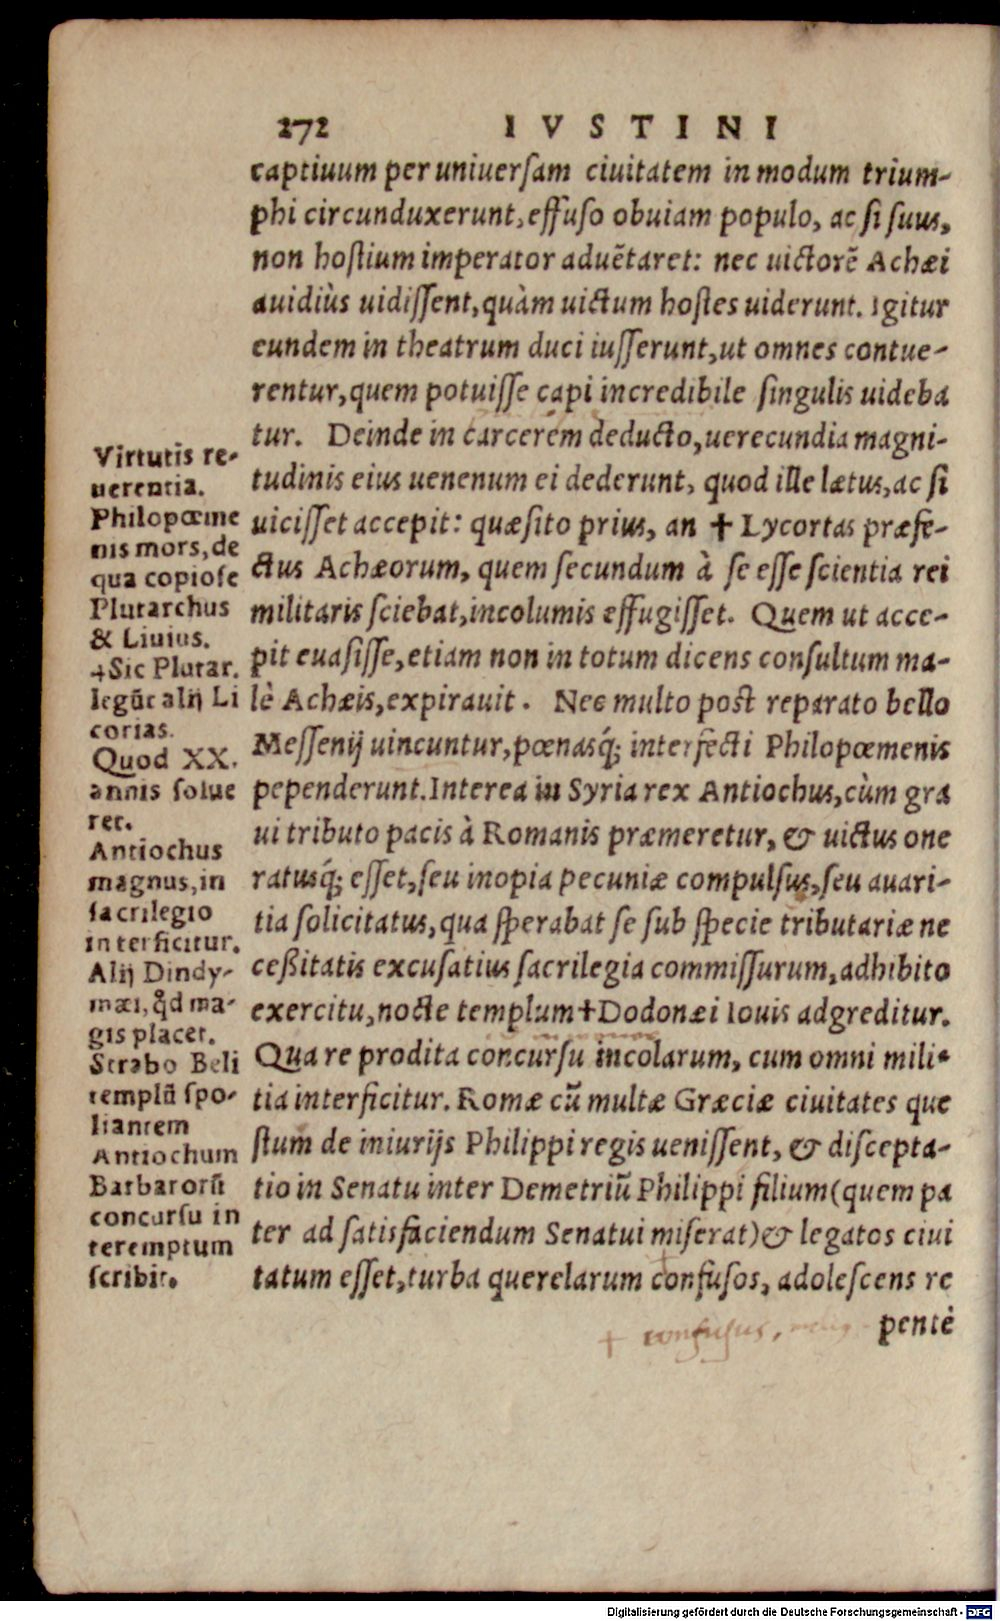 272 IVSTINI
captiuum per uniuerſam ciuitatem in modum trium-
phi circunduxerunt, effuſo obuiam populo, ac ſi ſuus,
non hoſtium imperator aduẽtaret: nec uictorẽ Achæi
auidiùs uidiſſent, quàm uictum hoſtes uiderunt. Igitur
eundem in theatrum duci iuſſerunt, ut omnes contue-
rentur, quem potuiſſe capi incredibile ſingulis uideba
tur. Deinde in carcerem deducto, uerecundia magni-
tudinis eius uenenum ei dederunt, quod ille lætus, ac ſi
uiciſſet accepit: quæſito prius, an ✝ Lycortas præfe-
ctus Achæorum, quem ſecundum à ſe eſſe ſcientia rei
militaris ſciebat, incolumis effugiſſet. Quem ut acce-
pit euaſiſſe, etiam non in totum dicens conſultum ma-
lè Achæis, expirauit. Nec multo poſt reparato bello
Meſſenij uincuntur, pœnasq́; interfecti Philopœmenis
pependerunt. Interea in Syria rex Antiochus, cùm gra
ui tributo pacis à Romanis præmeretur, & uictus one
ratusq́; eſſet, ſeu inopia pecuniæ compulſus, ſeu auari-
tia ſolicitatus, qua ſperabat ſe ſub ſpecie tributariæ ne
ceßitatis excuſatius ſacrilegia commiſſurum, adhibito
exercitu, nocte templum ✝ Dodonæi Iouis adgreditur.
Qua re prodita concurſu incolarum, cum omni mili-
tia interficitur. Romæ cũ multæ Græciæ ciuitates que
ſtum de iniurijs Philippi regis ueniſſent, & diſcepta-
tio in Senatu inter Demetriũ Philippi filium (quem pa
ter ad ſatisfaciendum Senatui miſerat) & legatos ciui
tatum eſſet, turba querelarum confuſos, adoleſcens re
pentè
Virtutis re-
uerentia.
Philopœme
nis mors, de
qua copioſe
Plutarchus
& Liuius.
✝Sic Plutar.
legũt alij Li
corias.
Quod XX.
annis ſolue
ret.
Antiochus
magnus, in
ſacrilegio
interficitur.
Alij Dindy-
mæi, qd̃ ma-
gis placet.
Strabo Beli
templũ ſpo-
liantem
Antiochum
Barbarorũ
concurſu in
teremptum
ſcribit.
+ confuſus,
Digitalisierung gefördert durch die Deutsche Forschungsgemeinschaft - DFG